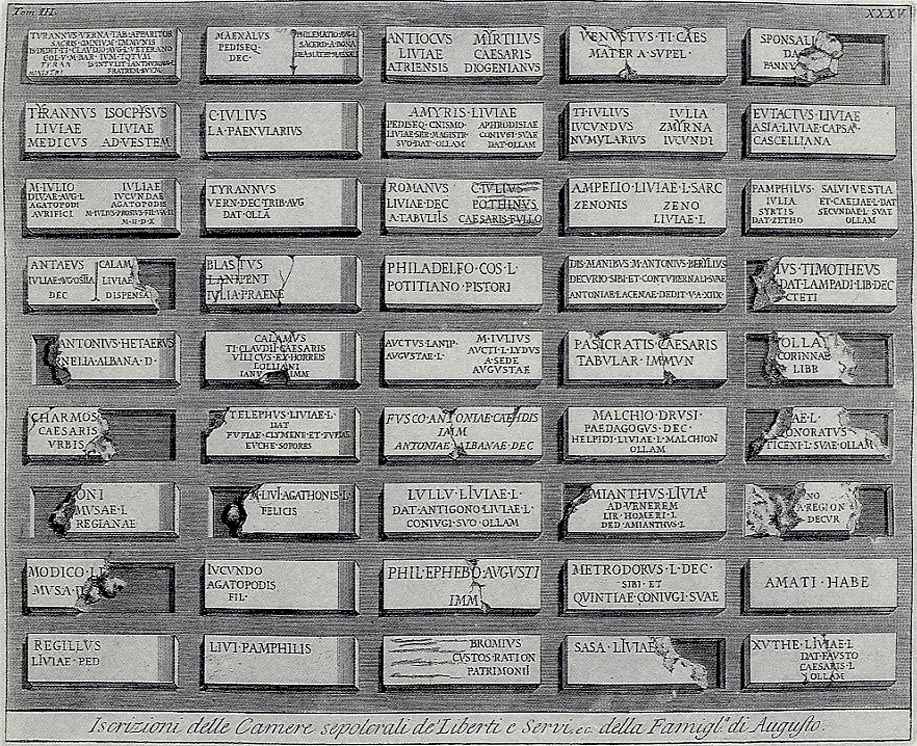 Tom III.
XXXV
TYRANNVS·VERNA·TAB·APPARITOR
SACRIS·OMNIVM·IMMVNIS
IS·DEDIT·TI·CLAVDIO·AVG·L·VETERANO
MAENALVS
PEDISEQ·
DEC·
PHILEMATIO·AVG·L
SACERD·A·BONA
ANTIOCVS MYRTILVS
LIVIAE CAESARIS
ATRIENSIS DIOGENIANVS
VENVSTVS·TI·CAES
MATER·A·SVPEL·
SPONSAL
DA
FANNY
TYRANNVS ISOCPYSVS
LIVIAE LIVIAE
MEDICVS AD·VESTEM
C·IVLIVS
LA·PAENVLARIVS
AMYRIS·LIVIAE
PEDISEQ·CNISMO· APHRODISIAE
LIVIAE·SER·MAGISTR· CONIVGI·SVAE
SVO·DAT·OLLAM DAT·OLLAM
TI·IVLIVS IVLIA
IVCVNDVS ZMYRNA
NVMVLARIVS IVCVNDI
EVTACTVS·LIVIAE
ASIA·LIVIAE·CAPSA·
CASCELLIANA
M·IVLIO IVLIAE
DIVAE·AVG·L IVCVNDAE
AGATOPODI AGATOPODIS
AVRIFICI
TYRANNVS
VERN·DEC·TRIB·AVG
DAT·OLLĀ
ROMANVS C·IVLIVS
LIVIAE·DEC POTHINVS
A·TABVLIS CAESARIS·FVLLO
AMPELIO·LIVIAE·L·SARC
ZENONIS ZENO
LIVIAE·L
PAMPHILVS· SALVI·VESTIA
IVLIA ET·CAELIAE·L·DAT
SYRTIS SECVNDAE·L·SVAE
DAT·ZETHO OLLAM
ANTAEVS CALAM
IVLIAE·AVG·OSTIA LIVIAE
DEC DISPENSA
BLASTVS
LANIPENT
IVLIA·FRAENE
PHILADELFO·COS·L·
POTITIANO·PISTORI
DIS·MANIBVS·M·ANTONIVS·BERYLLVS
DECVRIO·SIBI·ET·CONTVBERNALI·SVAE
ANTONIAE·LACENAE·DEDIT·V·A·XIIX·
IVS·TIMOTHEVS
DAT·LAMPADI·LIB·DEC
CTETI
ANTONIVS·HETAERVS
NELIA·ALBANA·D·
CALAMVS
TI·CLAVDII·CAESARIS
VILICVS·EX·HORREIS
LOLLIANI
IMM
AVCTVS·LANIP· M·IVLIVS
AVGVSTAE·L· AVCTI·L·LYDVS
A·SEDE
AVGVSTAE
PASICRATIS·CAESARIS
TABVLAR·IMMVN
OLLA
CORINNAE
LIBR
CHARMOS
CAESARIS
VRBIS
TELEPHVS·LIVIAE·L·
DAT
FVFIAE·CLYMENE·ET·FVFIAE
EVCHE·SORORES
FVSCO·ANTONIAE
IMM
ANTONIAE·ALBANAE·DEC
MALCHIO·DRVSI·
PAEDAGOGVS·DEC·
HELPIDI·LIVIAE·L·MALCHION
OLLAM
AE·L·
ONORATVS
TICENI·L·SVAE·OLLAM
ONI
MVSAE·L
REGIANAE
M·LIVI·AGATHONIS·L·
FELICIS
LVLLV·LIVIAE·L·
DAT·ANTIGONO·LIVIAE·L·
CONIVGI·SVO·OLLAM
MIANTHVS·LIVIAE
AD·VENEREM
LIB·HOMERI·L
DED·AMIANTHVS·L
NO
A·REGION
DECVR
MODICO·LI
MVSA·
IVCVNDO
AGATOPODIS
FIL·
PHIL·EPHEBO·AVGVSTI
IMM
METRODORVS·L·DEC·
SIBI·ET
QVINTIAE·CONIVGI·SVAE
AMATI·HABE
REGILLVS
LIVIAE·PED
LIVI·PAMPHILIS
BROMIVS
CVSTOS·RATION
PATRIMONII
SASA·LIVIAE
XVTHE·LIVIAE·L
DAT·FAVSTO
CAESARIS·L
OLLAM
Iscrizioni delle Camere sepolcrali de' Liberti e Servi, ec. della Famigl.ª di Augusto.